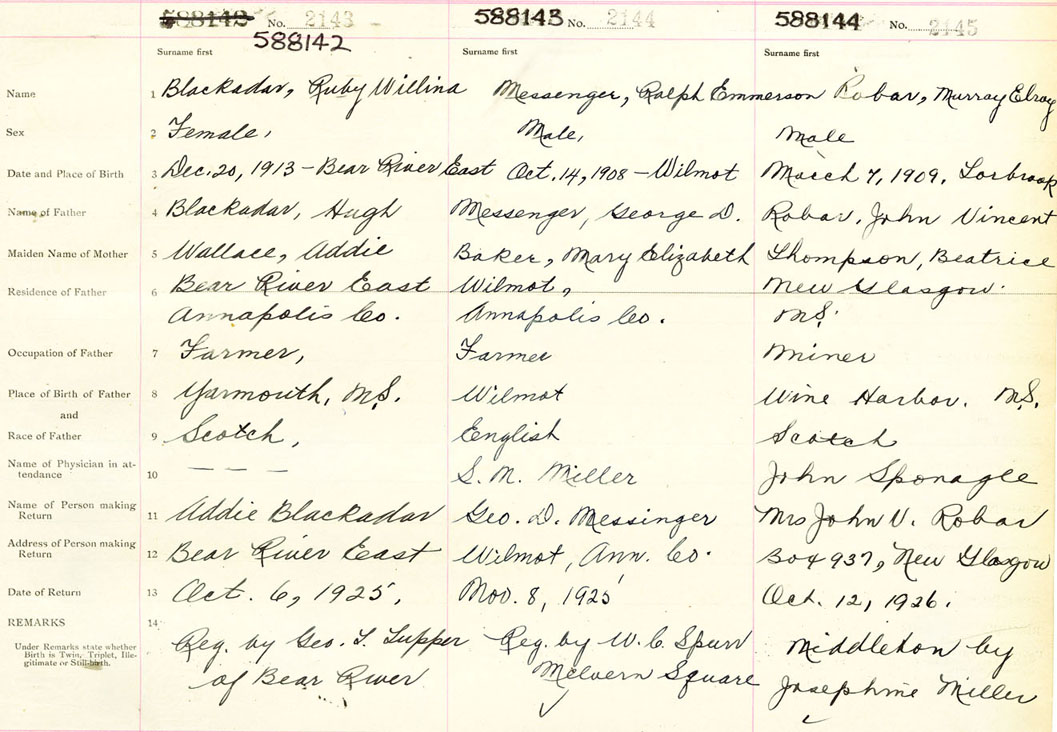 588142 No. 2143 588143 No. 2144 588144 No. 2145
588142
Surname first Surname first Surname first
Name 1 Blackadar, Ruby Willina Messenger, Ralph Emmerson Robar, Murray Elroy
Sex 2 Female, Male, Male
Date and Place of Birth 3 Dec. 20, 1913 – Bear River East Oct. 14, 1908 – Wilmot March 7, 1909, Torbrook
Name of Father 4 Blackadar, Hugh Messenger, George D. Robar, John Vincent
Maiden Name of Mother 5 Wallace, Addie Baker, Mary Elizabeth Thompson, Beatrice
Residence of Father 6 Bear River East Wilmot, New Glasgow.
Annapolis Co. Annapolis Co. N.S.
Occupation of Father 7 Farmer, Farmer Miner
Place of Birth of Father 8 Yarmouth, N.S. Wilmot Wine Harbor. N.S.
and
Race of Father 9 Scotch, English Scotch
Name of Physician in at-
tendance 10 — — — S. N. Miller John Sponagle
Name of Person making
Return 11 Addie Blackadar Geo. D. Messinger Mrs John V. Robar
Address of Person making
Return 12 Bear River East Wilmot, Ann. Co. Box 937, New Glasgow
Date of Return 13 Oct. 6, 1925, Nov. 8, 1925 Oct. 12, 1926.
REMARKS 14
Under Remarks state whether
Birth is Twin, Triplet, Ille-
gitimate or Still-birth.
Reg. by Geo. T. Tupper Reg. by W. C. Spurr Middleton by
of Bear River Melvern Square Josephine Miller